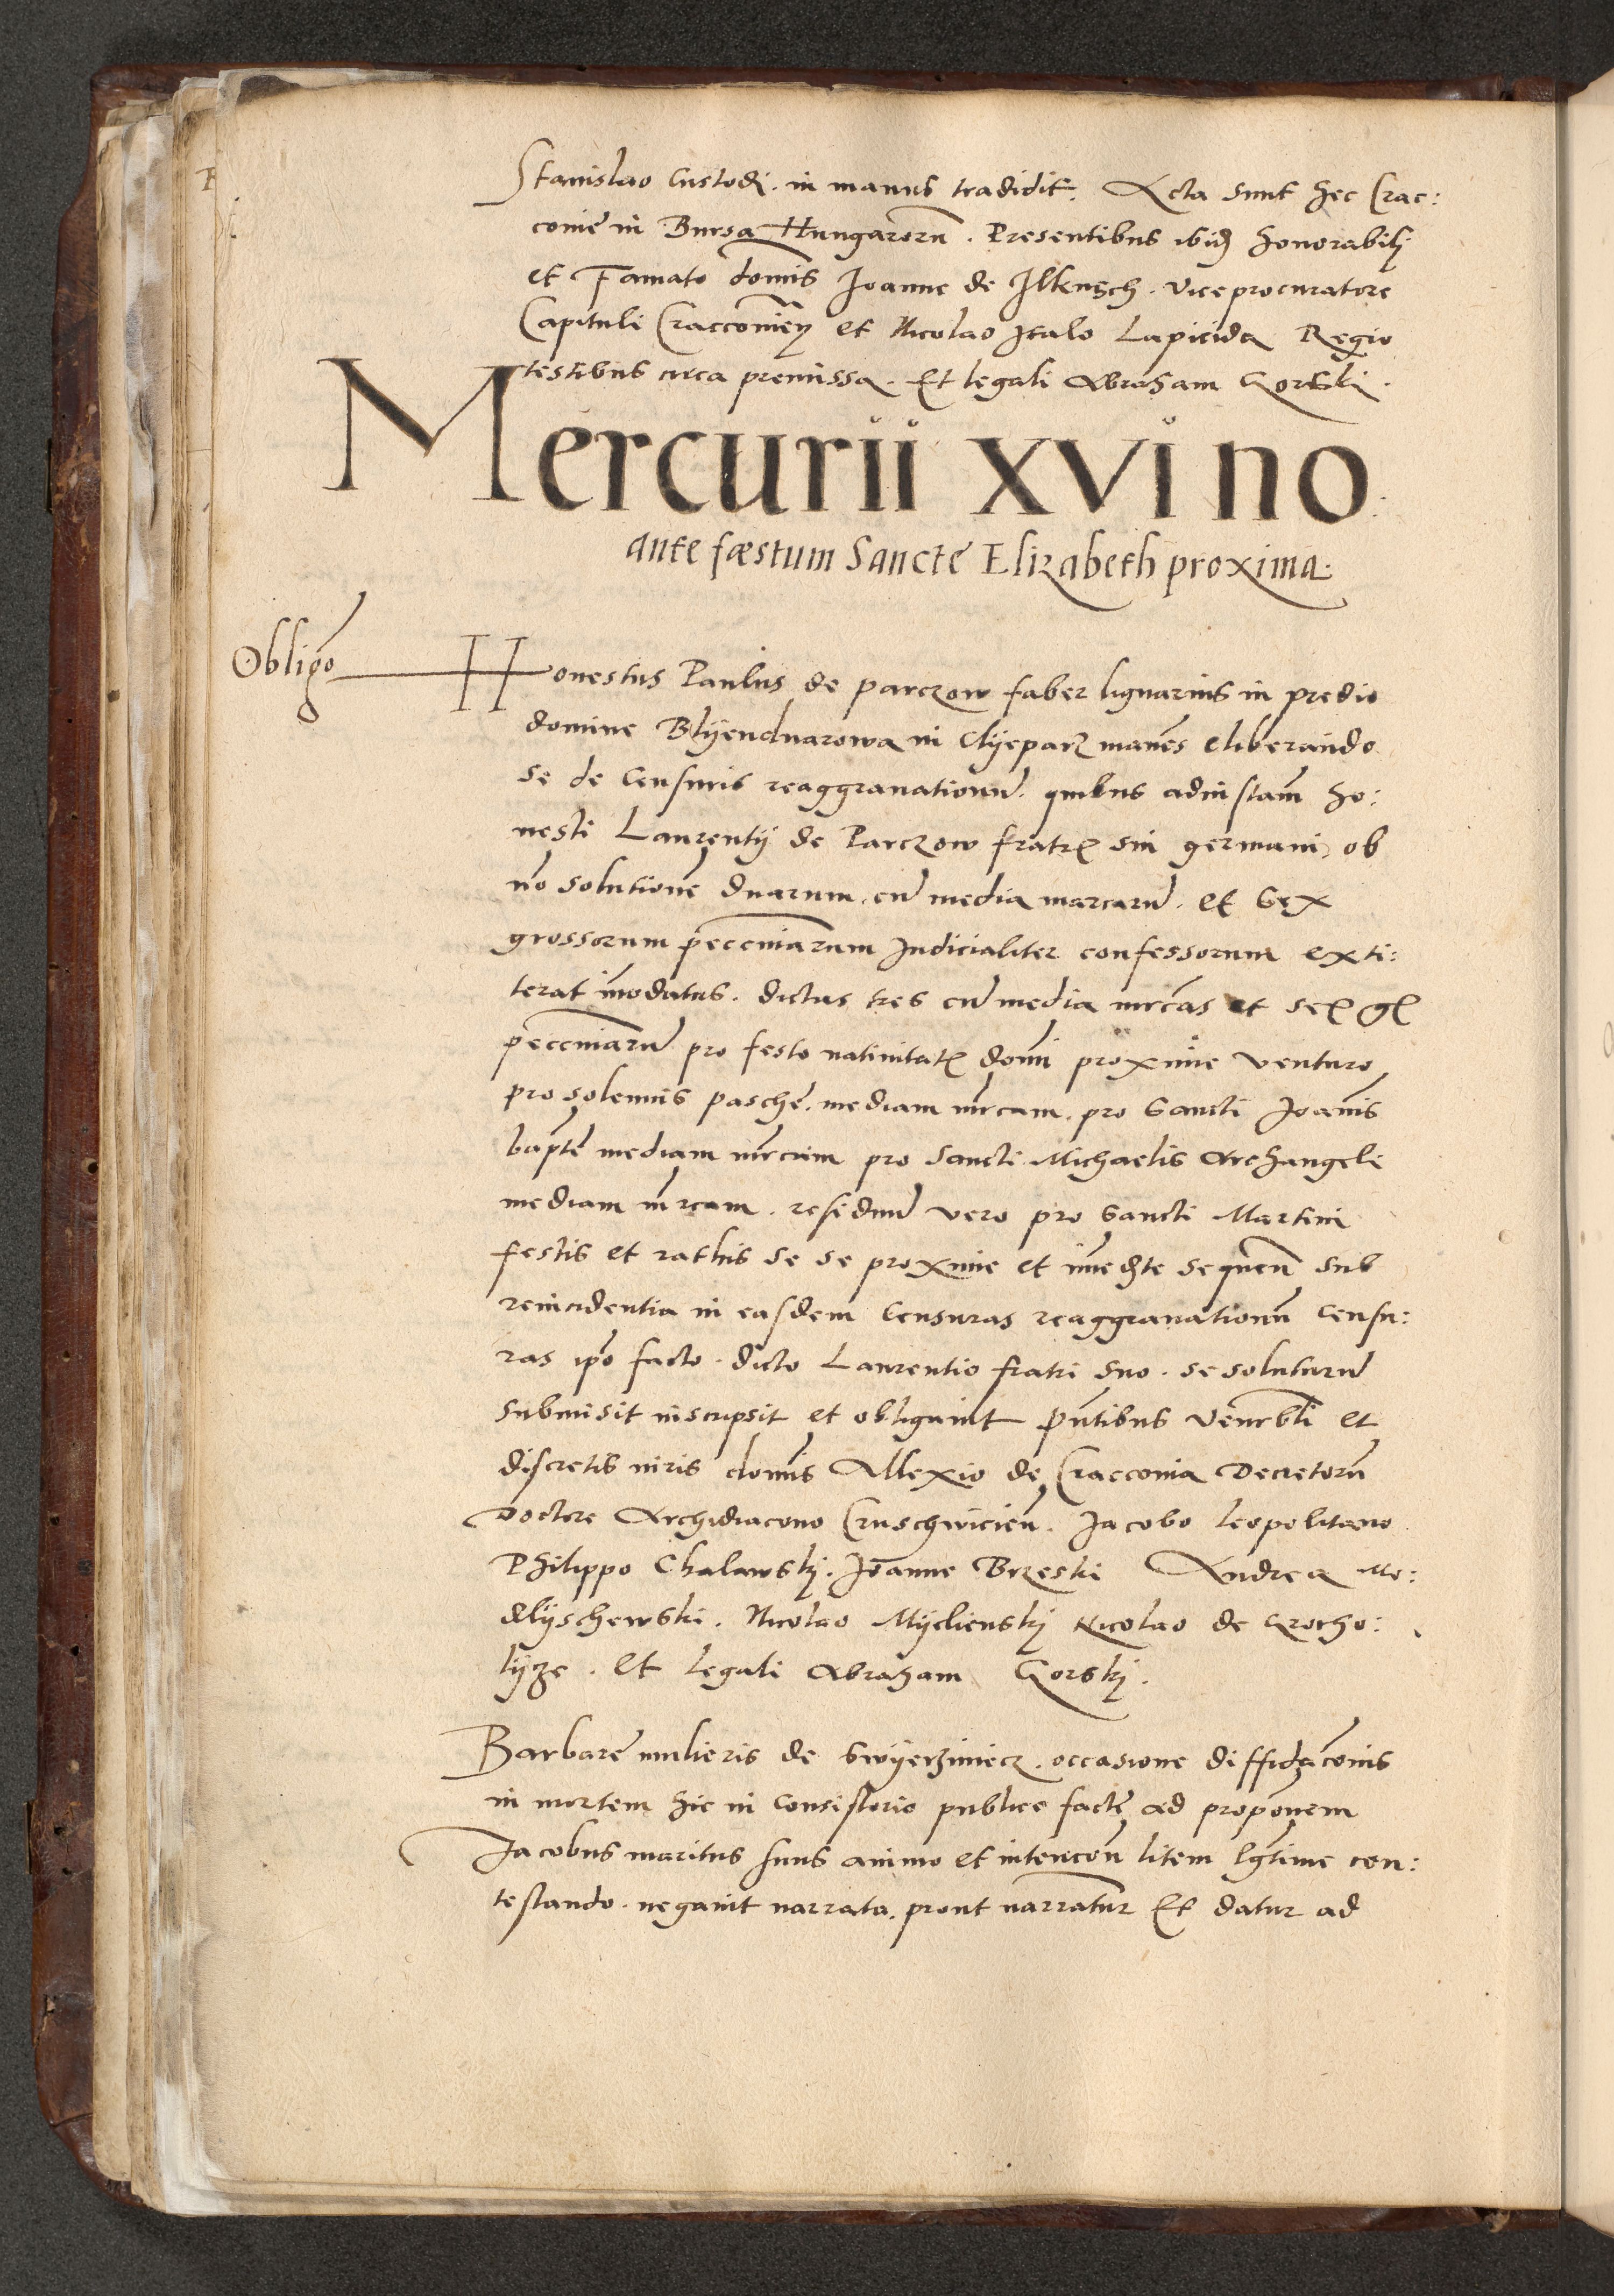 Stanislao Custodi. in manus tradidit. Acta sunt hec Crac:
coviẽ in Bursa Hungarorũ. Presentibus ibid̃ honorabilj
et Famato dom̃is Joanne de Ilkusch. viceprocuratore
Capituli Cracovieñ et Nicolao Italo Lapicida Regio
testibus circa premissa. Et legali Abraham Gorski.
Mercurii XVI no:
ante fæstum Sancte Elizabeth proxima.
Obligo
Honestus Paulus de parczow faber lignarius in predio
domine Blyendnarowa in Clyeparz maneñs eliberando
se de Censuris reaggravationũ. quibus ad instam̃ ho:
nesti Laurentij de Parczow fratris sui germani, ob
nõ solutionẽ duarum. cũ media marcarũ. et sex
grossorum pecc̃niarum Judicialiter confessorum exti:
terat ĩnodatus. dictas tres cũ media mrc̃as et sex gr
pecc̃niarũ pro festo nativitatis domĩ proxime venturo
pro solenniis paschẽ. mediam mr̃cam. pro Sancti Joañis
bapt̃e mediam mr̃cam pro Sancti Michaelis Archangeli
mediam mr̃cam. residuũ vero pro Sancti Martini
festis et rathis se se proxime et im̃ed̃te sequeñ sub
reincidentia in easdem Censuras reaggravationũ Censu:
ras ip̃o facto. dicto Laurentio fratri suo. se soluturũ
submisit inscripsit et obligavit p̃ntibus veñerbli et
discretis viris dom̃is Allexio de Craccovia Decretorũ
Doctore Archidiacono Cruschvicieñ. Jacobo Leopolitano
Philippo Chalawskj. Joanne Brzeski Andrea Mo:
dlyschewski. Nicolao Myclienskj Nicolao de Grocho:
lyze. Et legali Abraham Gorskj.
Barbarẽ mulieris de Swyerziniecz. occasione diffidac̃onis
in mortem hic in Consistorio publice factẽ ad propõnem
Jacobus maritus suus animo et intenc̃on litem lg̃time con:
testando. negavit narrata. prout narratur Et datur ad